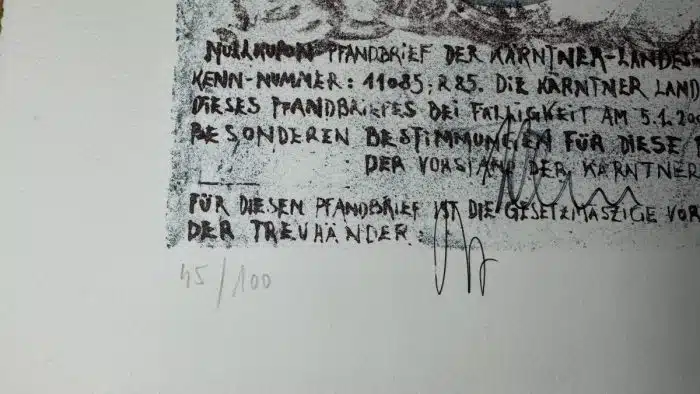 NULLKUPON-PFANDBRIEF DER KÄRNTNER-LANDES
KENN-NUMMER: 11085; R85. DIE KÄRNTNER LAND
DIESES PFANDBRIEFES BEI FÄLLIGKEIT AM 5.1.20
BESONDEREN BESTIMMUNGEN FÜR DIESE
DER VORSTAND DER KÄRNTNER
FÜR DIESEN PFANDBRIEF IST DIE GESETZMÄSZIGE VOR
DER TREUHÄNDER:
45/100